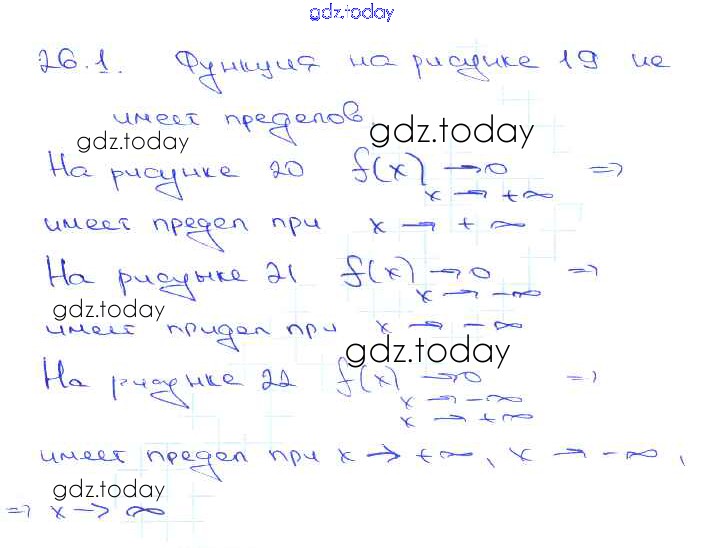 gdz.today
26.1. Функция на рисунке 19 не
имеет пределов
gdz.today gdz.today
На рисунке 20 f(x) → 0 ⇒
x → +∞
имеет предел при x → +∞
На рисунке 21 f(x) → 0 ⇒
x → -∞
gdz.today
имеет придел при x → -∞
gdz.today
На рисунке 22 f(x) → 0 ⇒
x → -∞
x → +∞
имеет предел при x → +∞, x → -∞,
gdz.today
⇒ x → ∞